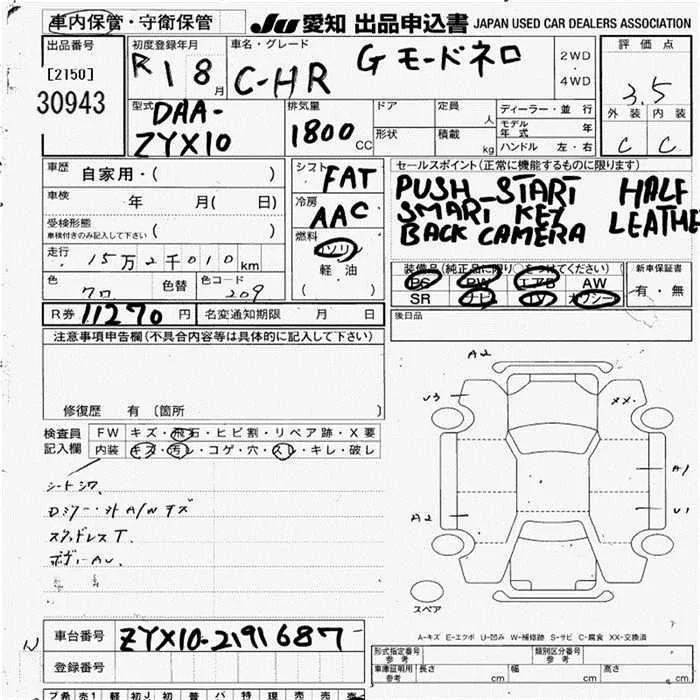 車内保管・守衛保管
JU 愛知 出品申込書 JAPAN USED CAR DEALERS ASSOCIATION
出品番号
[2150]
30943
初度登録年月
R 1 8 月
車名・グレード
C-HR G モードネロ
2WD
4WD
評価点
3.5
外装 内装
C C
型式
DAA-
ZYX10
排気量
1800 CC
ドア
形状
定員
人
積載
kg
ディーラー・並行
モデル年式 年
ハンドル 左・右
車歴
自家用・( )
車検
年 月( 日)
受検形態
車検付きのみ記入して下さい ( )
走行
15万2千010km
色
クロ
色替
色コード
209
シフト
FAT
冷房
AAC
燃料
ガソリン
軽油
( )
セールスポイント(正常に機能するものに限ります)
PUSH START HALF
SMART KEY LEATHE
BACK CAMERA
装備品(純正品に限り○をつけてください)
PS PW エアB AW
SR ナビ TV カワシート
新車保証書
有・無
後日品
R券 11270 円
名変通知期限 月 日
注意事項申告欄(不具合内容等は具体的に記入して下さい)
修復歴 有 〔箇所 〕
検査員
記入欄
FW キズ・飛石・ヒビ割・リペア跡・X要
内装 キズ・汚レ・コゲ・穴・スレ・キレ・破レ
シートシワ
スタッドレスT.
A2
U3
XX
A1
A2
U1
スペア
A-キズ E-エクボ U-凹み W-補修跡 S-サビ C-腐食 XX-交換済
車台番号 ZYX10-2191687
登録番号
型式指定番号
参考
類別区分番号
参考
車庫証明用
参考
長さ cm 幅 cm 高さ cm